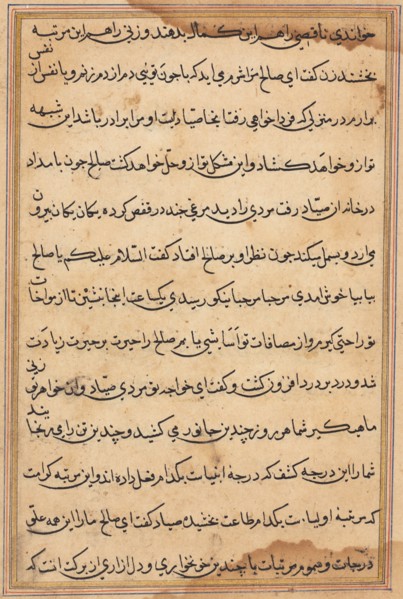 خواندی ناقصی را هم این کمال بدهند و زنی را هم این مرتبه
بخشند زن گفت ای صالح مرا شرم می آید که با چون تویی دم از دم زنم و یا نفس از نفس
برارم در منزلی که فردا خواهی رفت آنجا صیادیست او مرا برادر باشد این شبهه
تو از و خواهد کشاد و این مشکل تو از و حل خواهد کشت صالح چون بامداد
در خانه آن صیاد رفت مردی را دید مرغی چند در قفص کرده یکان یکان بیرون
می ارد و بسمل میکند چون نظر او بر صالح افتاد کفت السلام علیکم یا صالح
بیا بیا خوش آمدی مرحبا مرحبا نیکو رسیدی یکساعت اینجا بنشین تا از مواخات
تو راحتی کیرم و از مصافات تو آسایشی یابم صالح را حیرت بر حیرت زیادت
شد و درد بر درد افزون کشت و کفت ای خواجه تو مردی صیاد و ان خواهر تو زنی
ماهیکیر شما هر روز چندین جانور می کشید و چندین تن را می رنجانید
شما را این درجه کشف که درجه انبیاست بکدام فعل داده اند و این مرتبه کرامت
که مرتبه اولیاست بکدام طاعت بخشیده صیاد کفت ای صالح ما را این همه علو
درجات و سمو مرتبات با چندین خونخواری و دل ازاری از برکت انست که